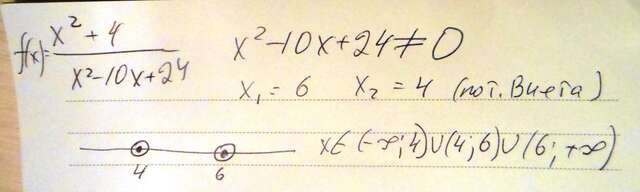 f(x)= x²+4 / x²-10x+24
x²-10x+24≠0
x₁=6 x₂=4 (по т. Виета)
4 6
x∈(-∞;4)∪(4;6)∪(6;+∞)